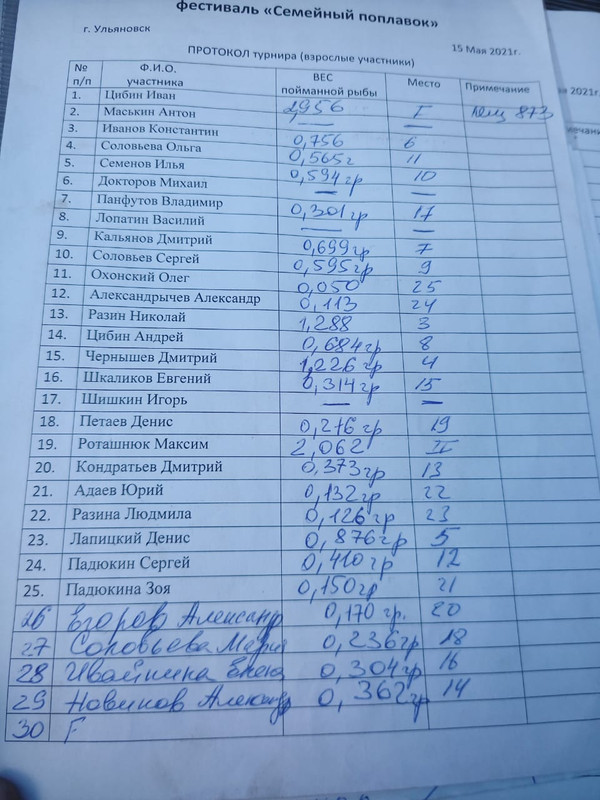 фестиваль «Семейный поплавок»
г. Ульяновск 15 Мая 2021г.
ПРОТОКОЛ турнира (взрослые участники)
№ п/п Ф.И.О. участника ВЕС пойманной рыбы Место Примечание
1. Цибин Иван 2,956 I Лещ 873
2. Маськин Антон — —
3. Иванов Константин 0,756 6
4. Соловьева Ольга 0,565г 11
5. Семенов Илья 0,594 гр 10
6. Докторов Михаил — —
7. Панфутов Владимир 0,301 гр 17
8. Лопатин Василий — —
9. Кальянов Дмитрий 0,699гр 7
10. Соловьев Сергей 0,595гр 9
11. Охонский Олег 0,050 25
12. Александрычев Александр 0,113 24
13. Разин Николай 1,288 3
14. Цибин Андрей 0,684 гр 8
15. Чернышев Дмитрий 1,226 гр 4
16. Шкаликов Евгений 0,314 гр 15
17. Шишкин Игорь — —
18. Петаев Денис 0,216 гр 19
19. Роташнюк Максим 2,062 II
20. Кондратьев Дмитрий 0,373гр 13
21. Адаев Юрий 0,132гр 22
22. Разина Людмила 0,126гр 23
23. Лапицкий Денис 0,876гр 5
24. Падюкин Сергей 0,410гр 12
25. Падюкина Зоя 0,150гр 21
26 Егоров Александр 0,170 гр. 20
27 Соловьева Мария 0,236гр 18
28 0,304гр 16
29 Новиков Александр 0,362гр 14
30 Г